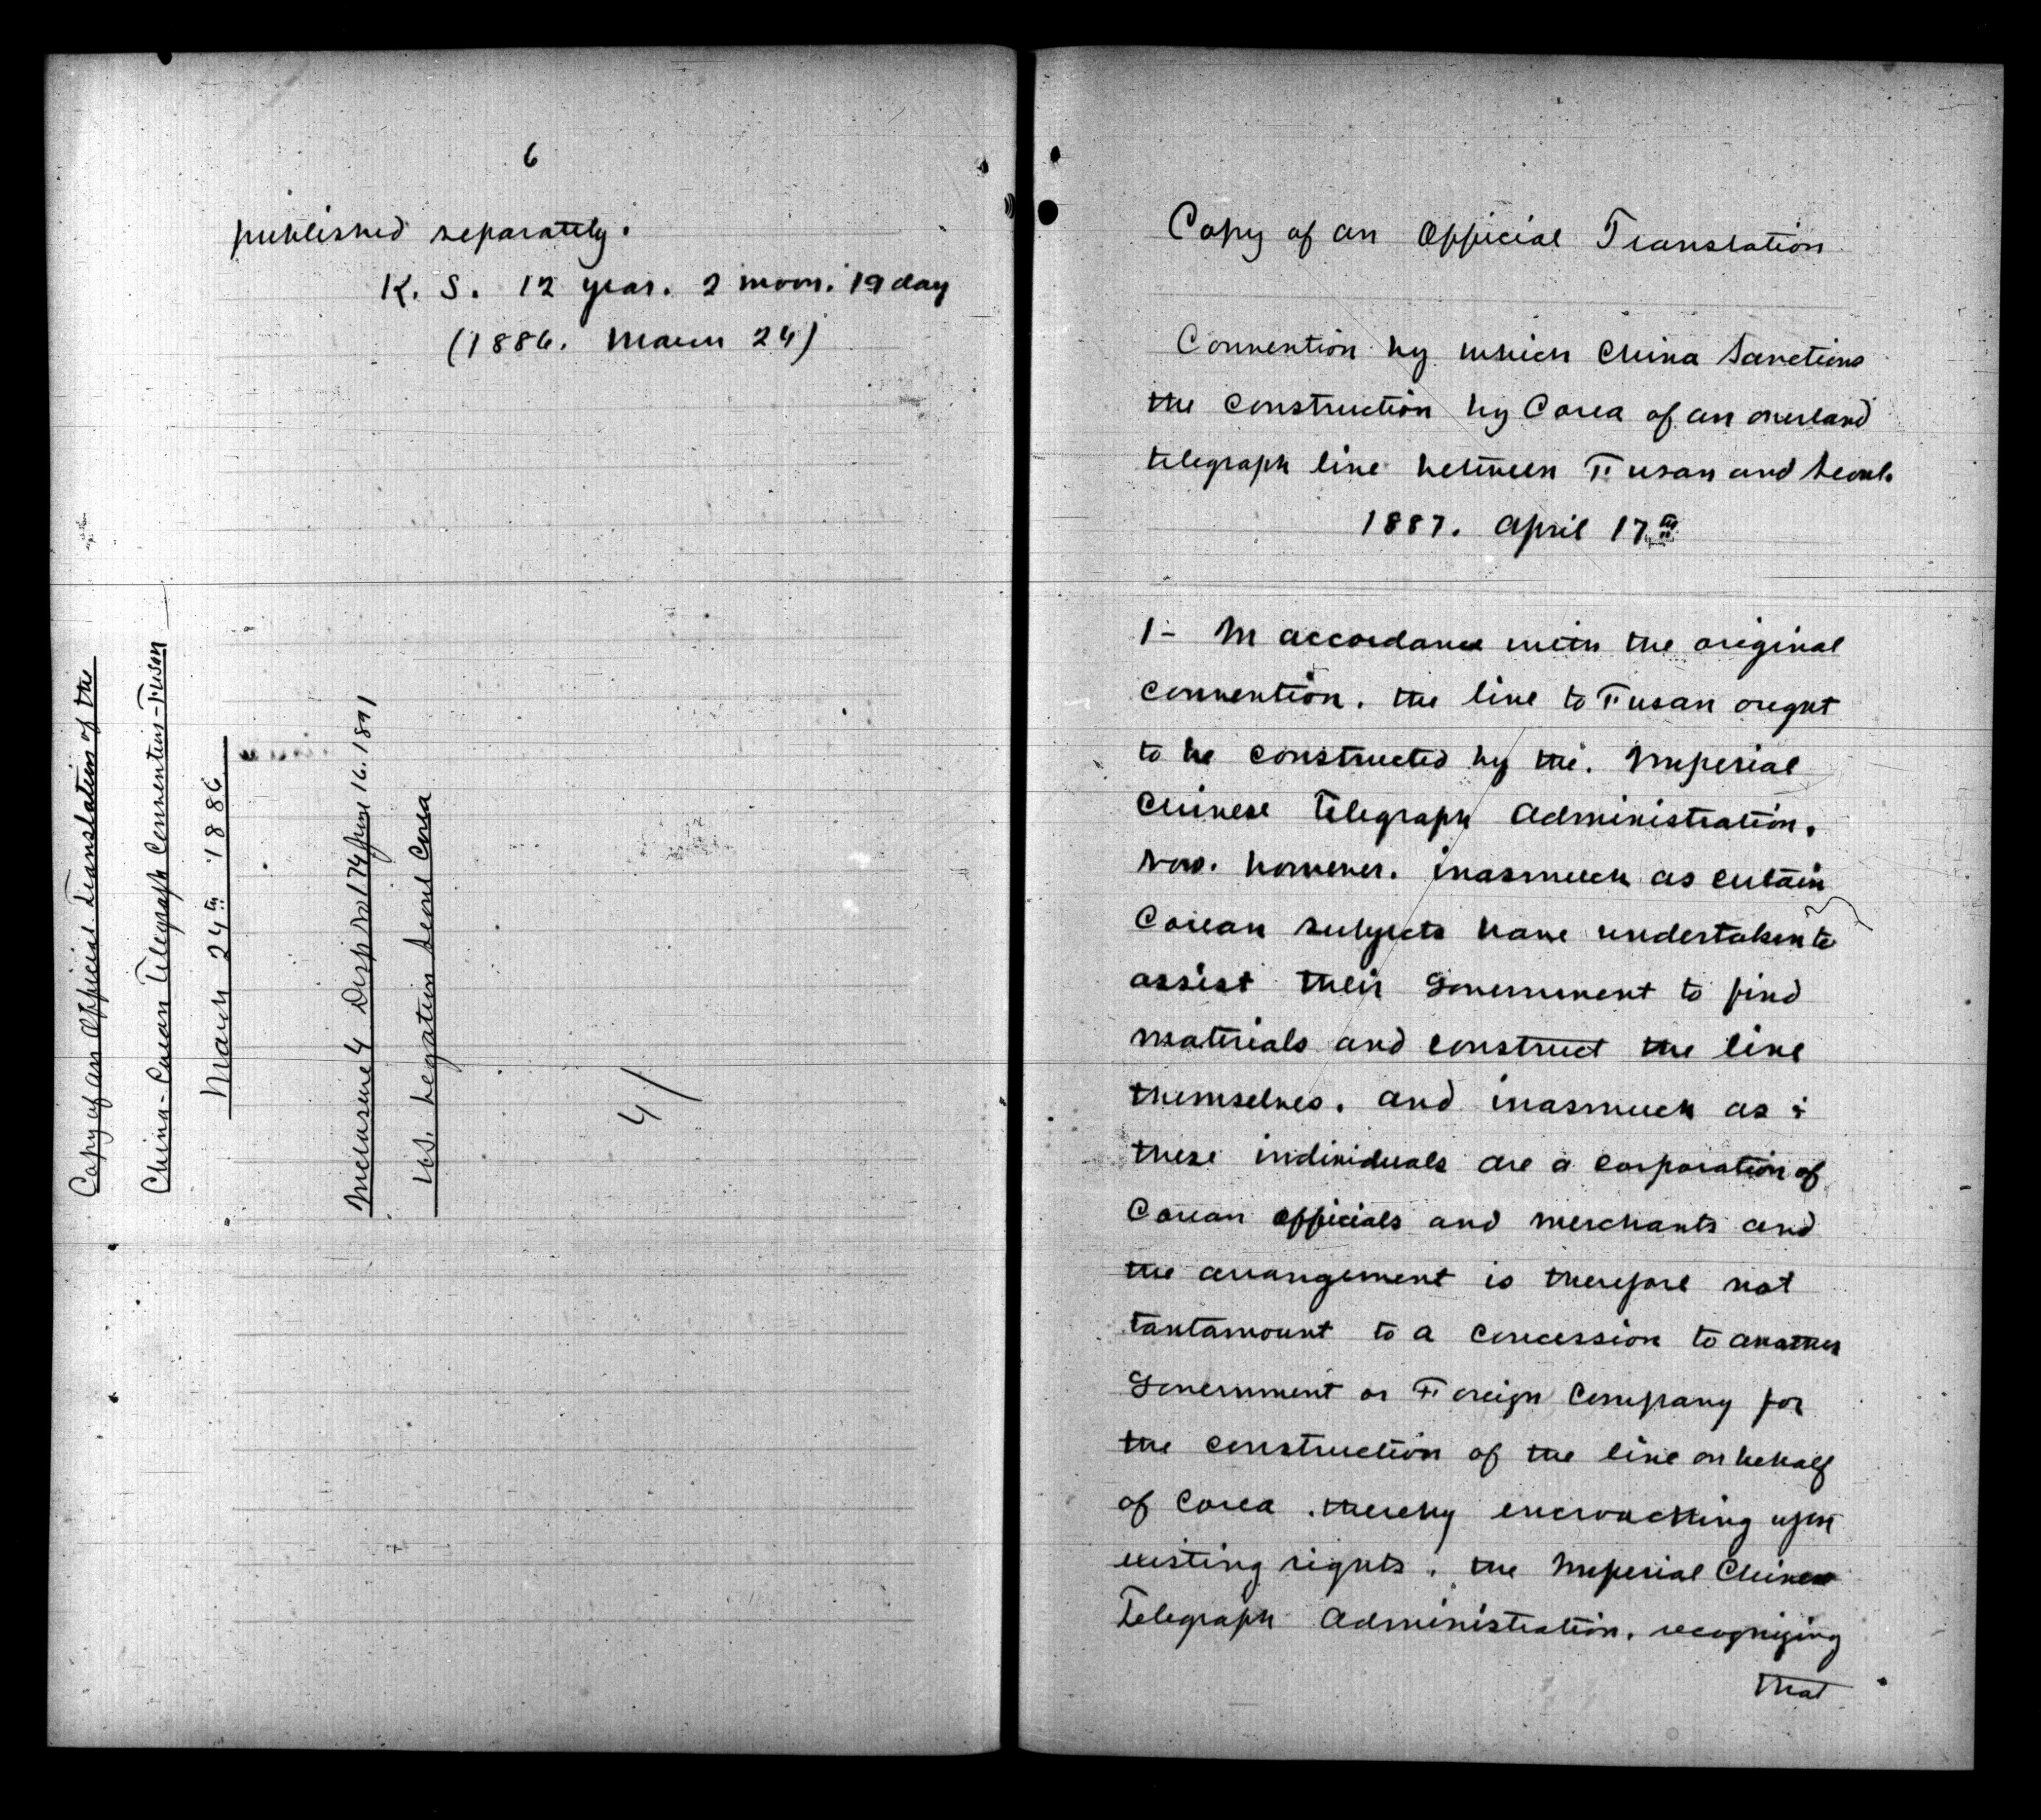 6
published separately.
K. S. 12 year. 2 moon. 19 day
(1886. March 24)
Copy of an Official Translation of the
China-Corean Telegraph Convention-Fusan
March 24th 1886
Inclosure 4 Disp No 174 June 16. 1891
U.S. Legation Seoul Corea
4/
Copy of an Official Translation
Convention by which China Sanctions
the construction by Corea of an overland
telegraph line between Fusan and Seoul.
1887. April 17th
1- In accordance with the original
convention. the line to Fusan ought
to be constructed by the. Imperial
Chinese Telegraph Administration.
Now. however. inasmuch as certain
Corean subjects have undertaken to
assist their Government to find
materials and construct the line
themselves. and inasmuch as :
these individuals are a corporation of
Corean officials and merchants and
the arrangement is therefore not
tantamount to a concession to another
Government or Foreign Company for
the construction of the line on behalf
of Corea . thereby encroaching upon
existing rights . the Imperial Chinese
Telegraph Administration. recognizing
that